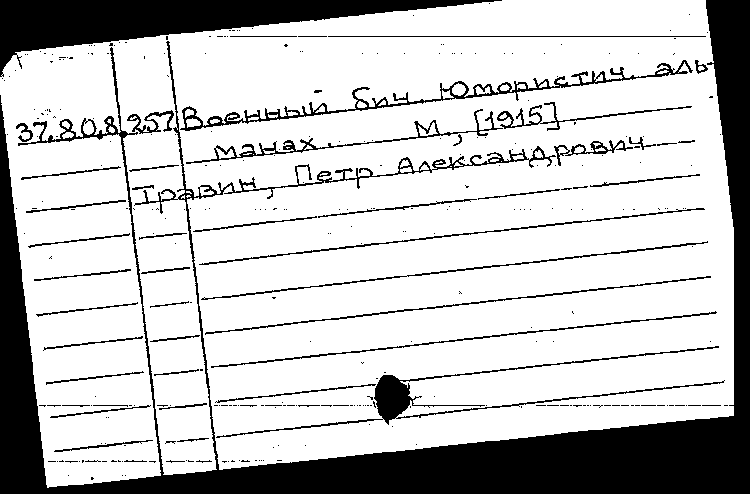 37.80.8.257 Военный бич. Юмористич. аль-
манах. М., [1915].
Травин, Петр Александрович